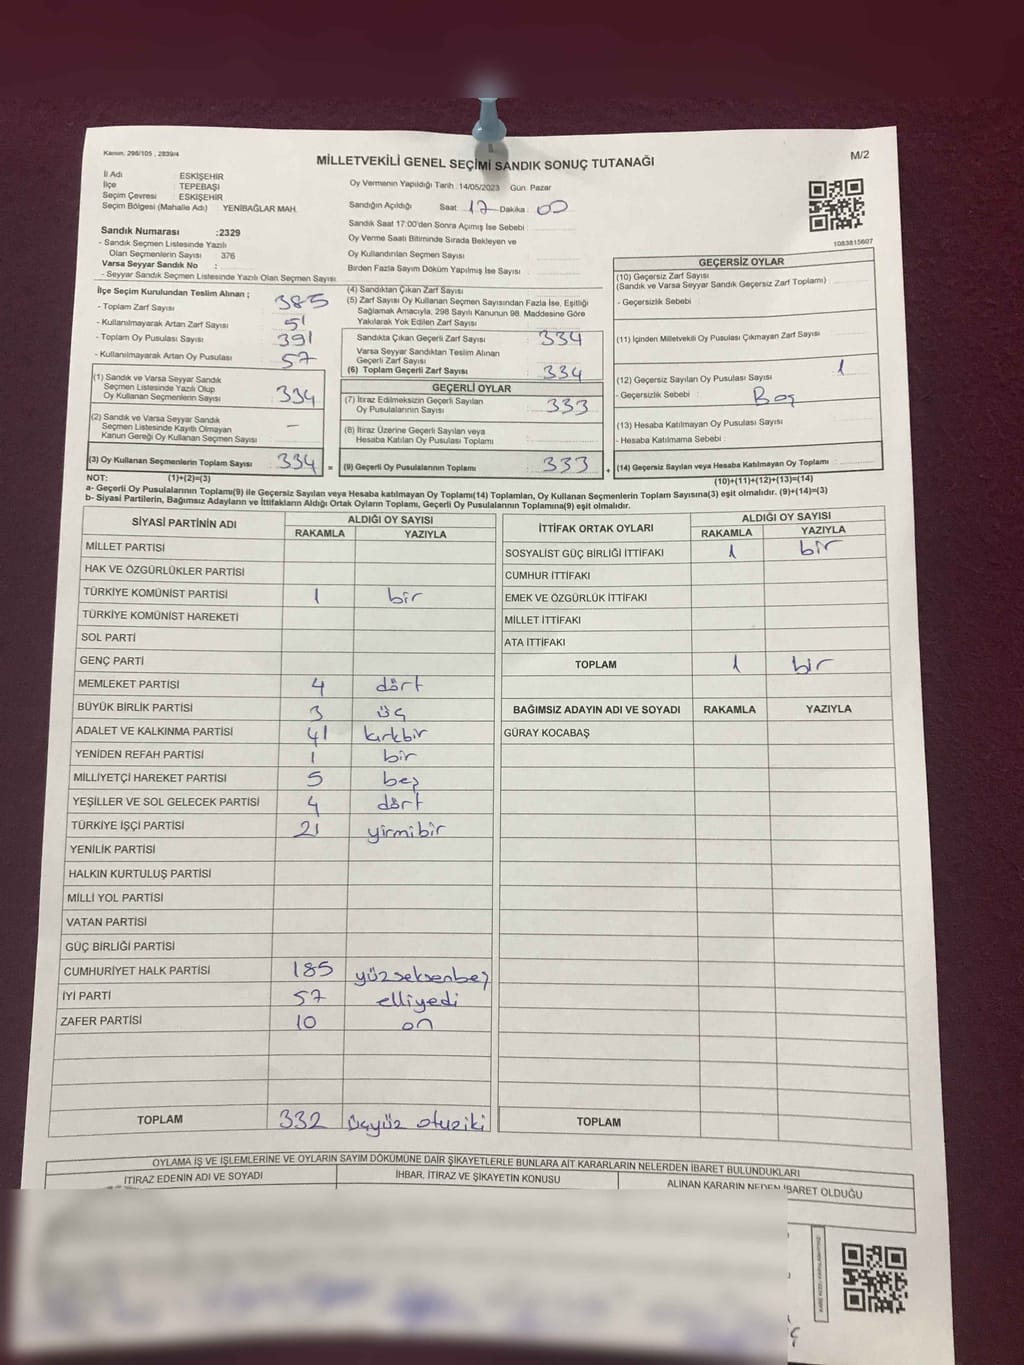 Kanun. 298/105 , 2839/4
MİLLETVEKİLİ GENEL SEÇİMİ SANDIK SONUÇ TUTANAĞI
M/2
İl Adı : ESKİŞEHİR
İlçe : TEPEBAŞI
Seçim Çevresi : ESKİŞEHİR
Seçim Bölgesi (Mahalle Adı) : YENİBAĞLAR MAH.
Oy Vermenin Yapıldığı Tarih : 14/05/2023 Gün: Pazar
Sandığın Açıldığı Saat : 17 Dakika : 00
Sandık Saat 17:00'den Sonra Açımış İse Sebebi :
Oy Verme Saati Bitiminde Sırada Bekleyen ve
Oy Kullandırılan Seçmen Sayısı :
Birden Fazla Sayım Döküm Yapılmış İse Sayısı :
1083815607
Sandık Numarası :2329
- Sandık Seçmen Listesinde Yazılı
Olan Seçmenlerin Sayısı : 376
Varsa Seyyar Sandık No :
- Seyyar Sandık Seçmen Listesinde Yazılı Olan Seçmen Sayısı :
İlçe Seçim Kurulundan Teslim Alınan ;
- Toplam Zarf Sayısı : 385
- Kullanılmayarak Artan Zarf Sayısı : 51
- Toplam Oy Pusulası Sayısı : 391
- Kullanılmayarak Artan Oy Pusulası : 57
(1) Sandık ve Varsa Seyyar Sandık
Seçmen Listesinde Yazılı Olup
Oy Kullanan Seçmenlerin Sayısı : 334
(2) Sandık ve Varsa Seyyar Sandık
Seçmen Listesinde Kayıtlı Olmayan
Kanun Gereği Oy Kullanan Seçmen Sayısı : —
(3) Oy Kullanan Seçmenlerin Toplam Sayısı : 334 =
(4) Sandıktan Çıkan Zarf Sayısı :
(5) Zarf Sayısı Oy Kullanan Seçmen Sayısından Fazla İse, Eşitliği
Sağlamak Amacıyla, 298 Sayılı Kanunun 98. Maddesine Göre
Yakılarak Yok Edilen Zarf Sayısı :
Sandıkta Çıkan Geçerli Zarf Sayısı : 334
Varsa Seyyar Sandıktan Teslim Alınan
Geçerli Zarf Sayısı :
(6) Toplam Geçerli Zarf Sayısı : 334
GEÇERLİ OYLAR
(7) İtiraz Edilmeksizin Geçerli Sayılan
Oy Pusulalarının Sayısı : 333
(8) İtiraz Üzerine Geçerli Sayılan veya
Hesaba Katılan Oy Pusulası Toplamı :
(9) Geçerli Oy Pusulalarının Toplamı : 333 +
GEÇERSİZ OYLAR
(10) Geçersiz Zarf Sayısı
(Sandık ve Varsa Seyyar Sandık Geçersiz Zarf Toplamı) :
- Geçersizlik Sebebi :
(11) İçinden Milletvekili Oy Pusulası Çıkmayan Zarf Sayısı :
(12) Geçersiz Sayılan Oy Pusulası Sayısı : 1
- Geçersizlik Sebebi : Boş
(13) Hesaba Katılmayan Oy Pusulası Sayısı :
- Hesaba Katılmama Sebebi :
(14) Geçersiz Sayılan veya Hesaba Katılmayan Oy Toplamı :
NOT: (1)+(2)=(3) (10)+(11)+(12)+(13)=(14)
a- Geçerli Oy Pusulalarının Toplamı(9) ile Geçersiz Sayılan veya Hesaba katılmayan Oy Toplamı(14) Toplamları, Oy Kullanan Seçmenlerin Toplam Sayısına(3) eşit olmalıdır. (9)+(14)=(3)
b- Siyasi Partilerin, Bağımsız Adayların ve İttifakların Aldığı Ortak Oyların Toplamı, Geçerli Oy Pusulalarının Toplamına(9) eşit olmalıdır.
SİYASİ PARTİNİN ADI ALDIĞI OY SAYISI
RAKAMLA YAZIYLA
MİLLET PARTİSİ
HAK VE ÖZGÜRLÜKLER PARTİSİ
TÜRKİYE KOMÜNİST PARTİSİ 1 bir
TÜRKİYE KOMÜNİST HAREKETİ
SOL PARTİ
GENÇ PARTİ
MEMLEKET PARTİSİ 4 dört
BÜYÜK BİRLİK PARTİSİ 3 üç
ADALET VE KALKINMA PARTİSİ 41 kırkbir
YENİDEN REFAH PARTİSİ 1 bir
MİLLİYETÇİ HAREKET PARTİSİ 5 beş
YEŞİLLER VE SOL GELECEK PARTİSİ 4 dört
TÜRKİYE İŞÇİ PARTİSİ 21 yirmibir
YENİLİK PARTİSİ
HALKIN KURTULUŞ PARTİSİ
MİLLİ YOL PARTİSİ
VATAN PARTİSİ
GÜÇ BİRLİĞİ PARTİSİ
CUMHURİYET HALK PARTİSİ 185 yüzseksenbeş
İYİ PARTİ 57 elliyedi
ZAFER PARTİSİ 10 on
TOPLAM 332 üçyüz otuziki
İTTİFAK ORTAK OYLARI ALDIĞI OY SAYISI
RAKAMLA YAZIYLA
SOSYALİST GÜÇ BİRLİĞİ İTTİFAKI 1 bir
CUMHUR İTTİFAKI
EMEK VE ÖZGÜRLÜK İTTİFAKI
MİLLET İTTİFAKI
ATA İTTİFAKI
TOPLAM 1 bir
BAĞIMSIZ ADAYIN ADI VE SOYADI RAKAMLA YAZIYLA
GÜRAY KOCABAŞ
TOPLAM
OYLAMA İŞ VE İŞLEMLERİNE VE OYLARIN SAYIM DÖKÜMÜNE DAİR ŞİKAYETLERLE BUNLARA AİT KARARLARIN NELERDEN İBARET BULUNDUKLARI
İTİRAZ EDENİN ADI VE SOYADI İHBAR, İTİRAZ VE ŞİKAYETİN KONUSU ALINAN KARARIN NEDEN İBARET OLDUĞU